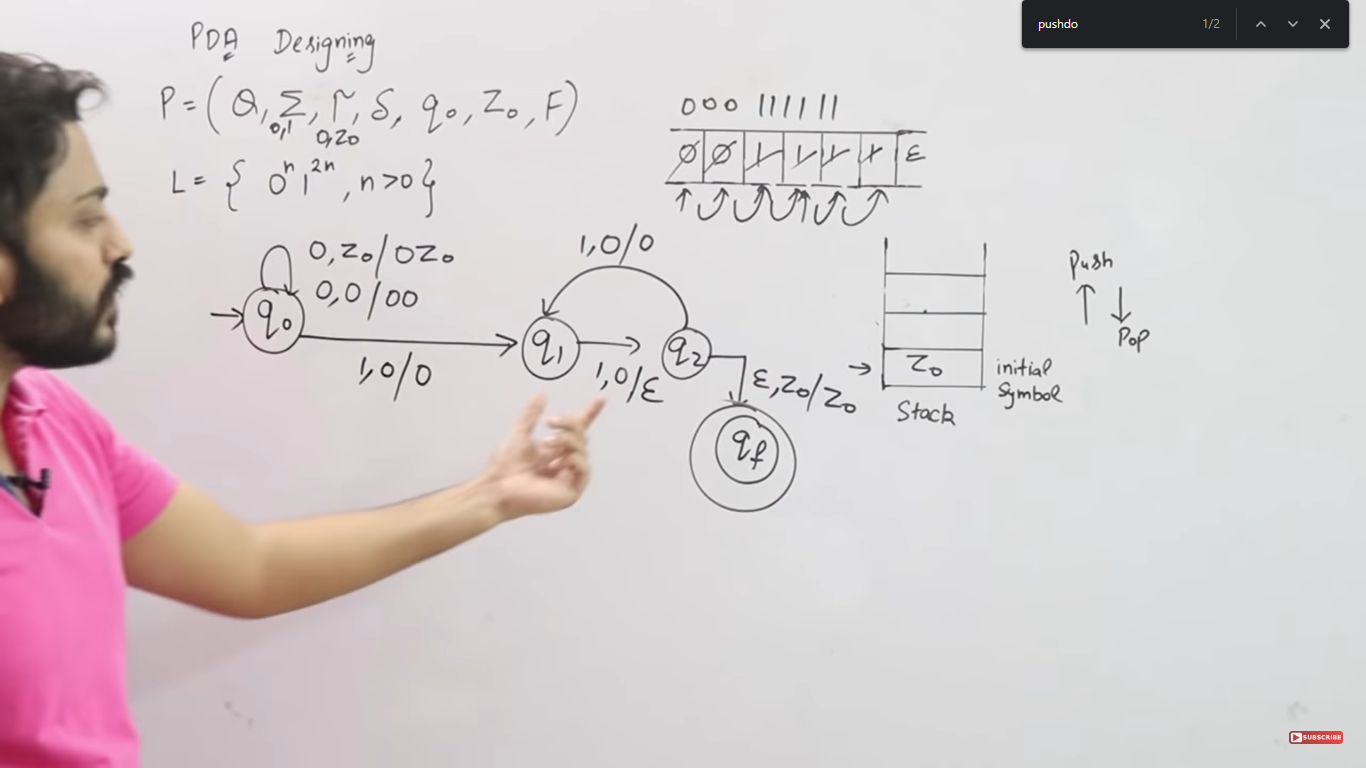 pushdo 1/2
PDA Designing
P = (Q, Σ, Γ, δ, q₀, Z₀, F)
0,1 0,Z₀
L = { 0ⁿ1²ⁿ, n>0 }
000 111111
0 0 1 1 1 1 ε
0,Z₀/0Z₀
0,0/00
q₀
1,0/0
q₁
1,0/ε
1,0/0
q₂
ε,Z₀/Z₀
qf
Z₀
Stack
initial
Symbol
Push
Pop
SUBSCRIBE